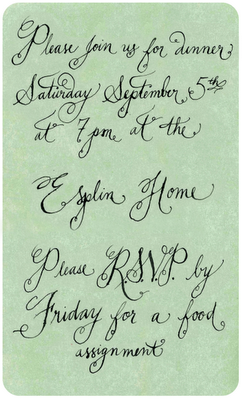 Please join us for dinner
Saturday September 5th
at 7pm at the
Esplin Home
Please R.S.V.P. by
Friday for a food
assignment